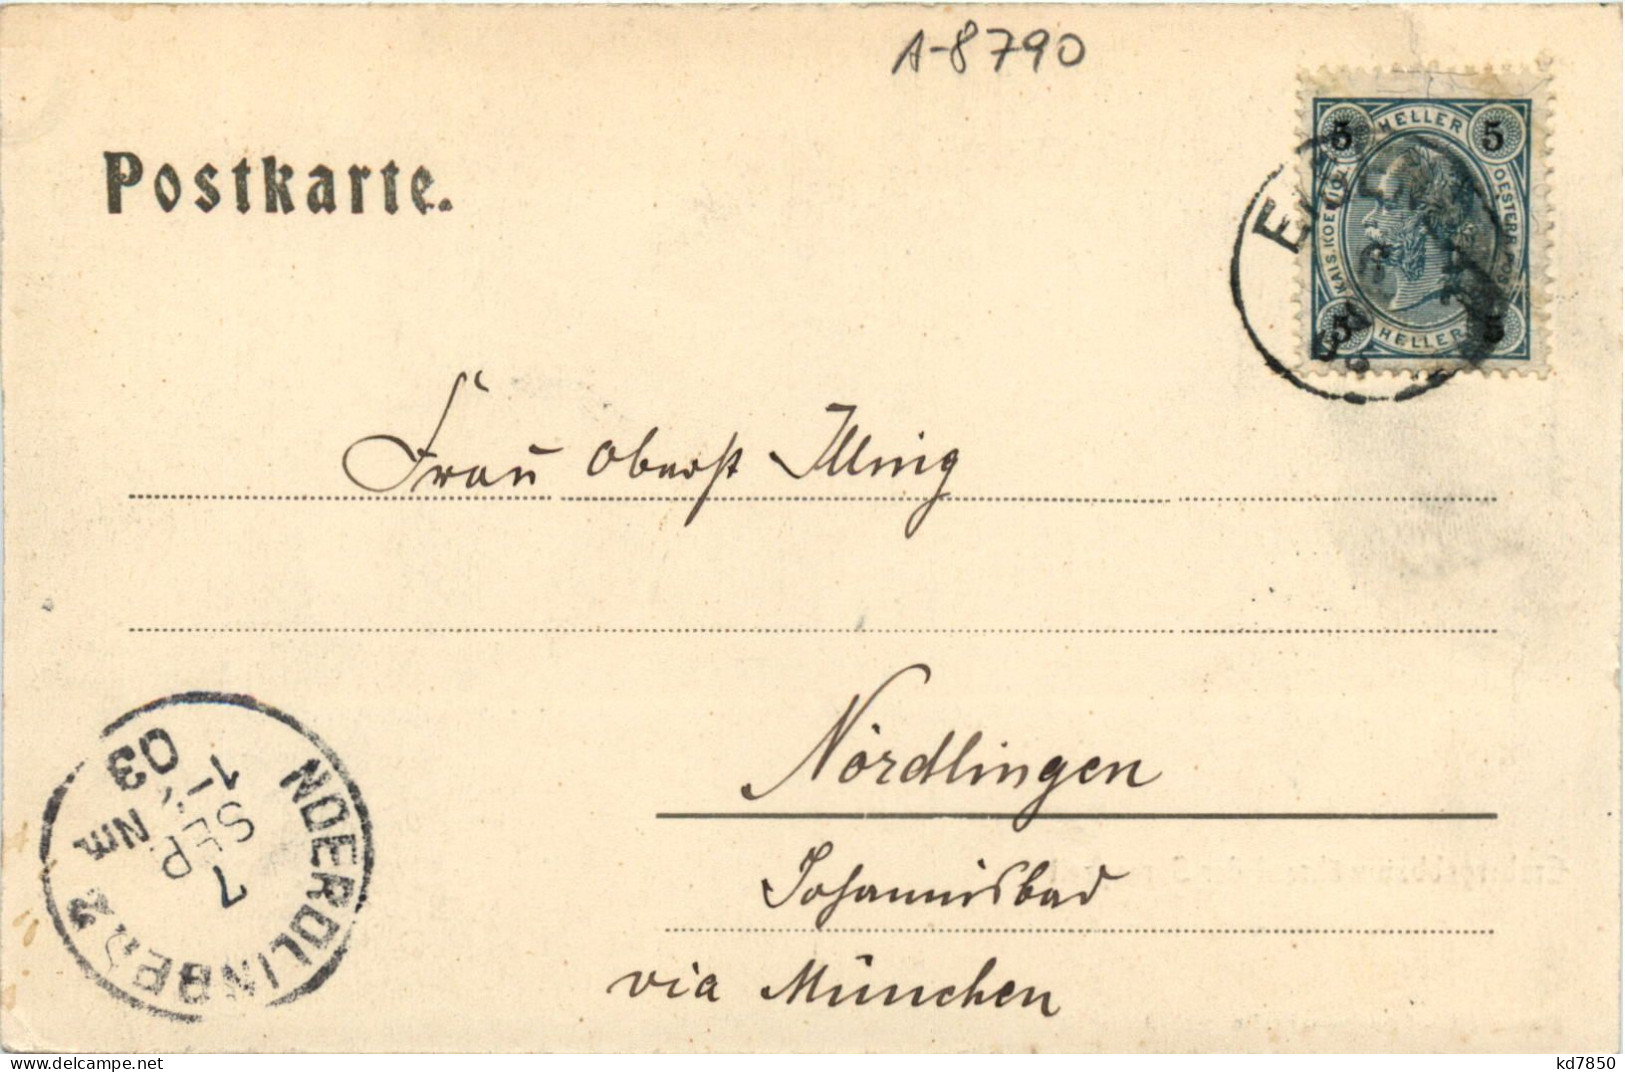 A-8790
Postkarte.
5 HELLER 5
KAIS. KOENIGL. OESTERR. POST
5 HELLER 5
Frau Oberst Illing
Nördlingen
Johannisbad
via München
NOERDLINGEN 2
7
SEP.
Nm.
03
kd7850